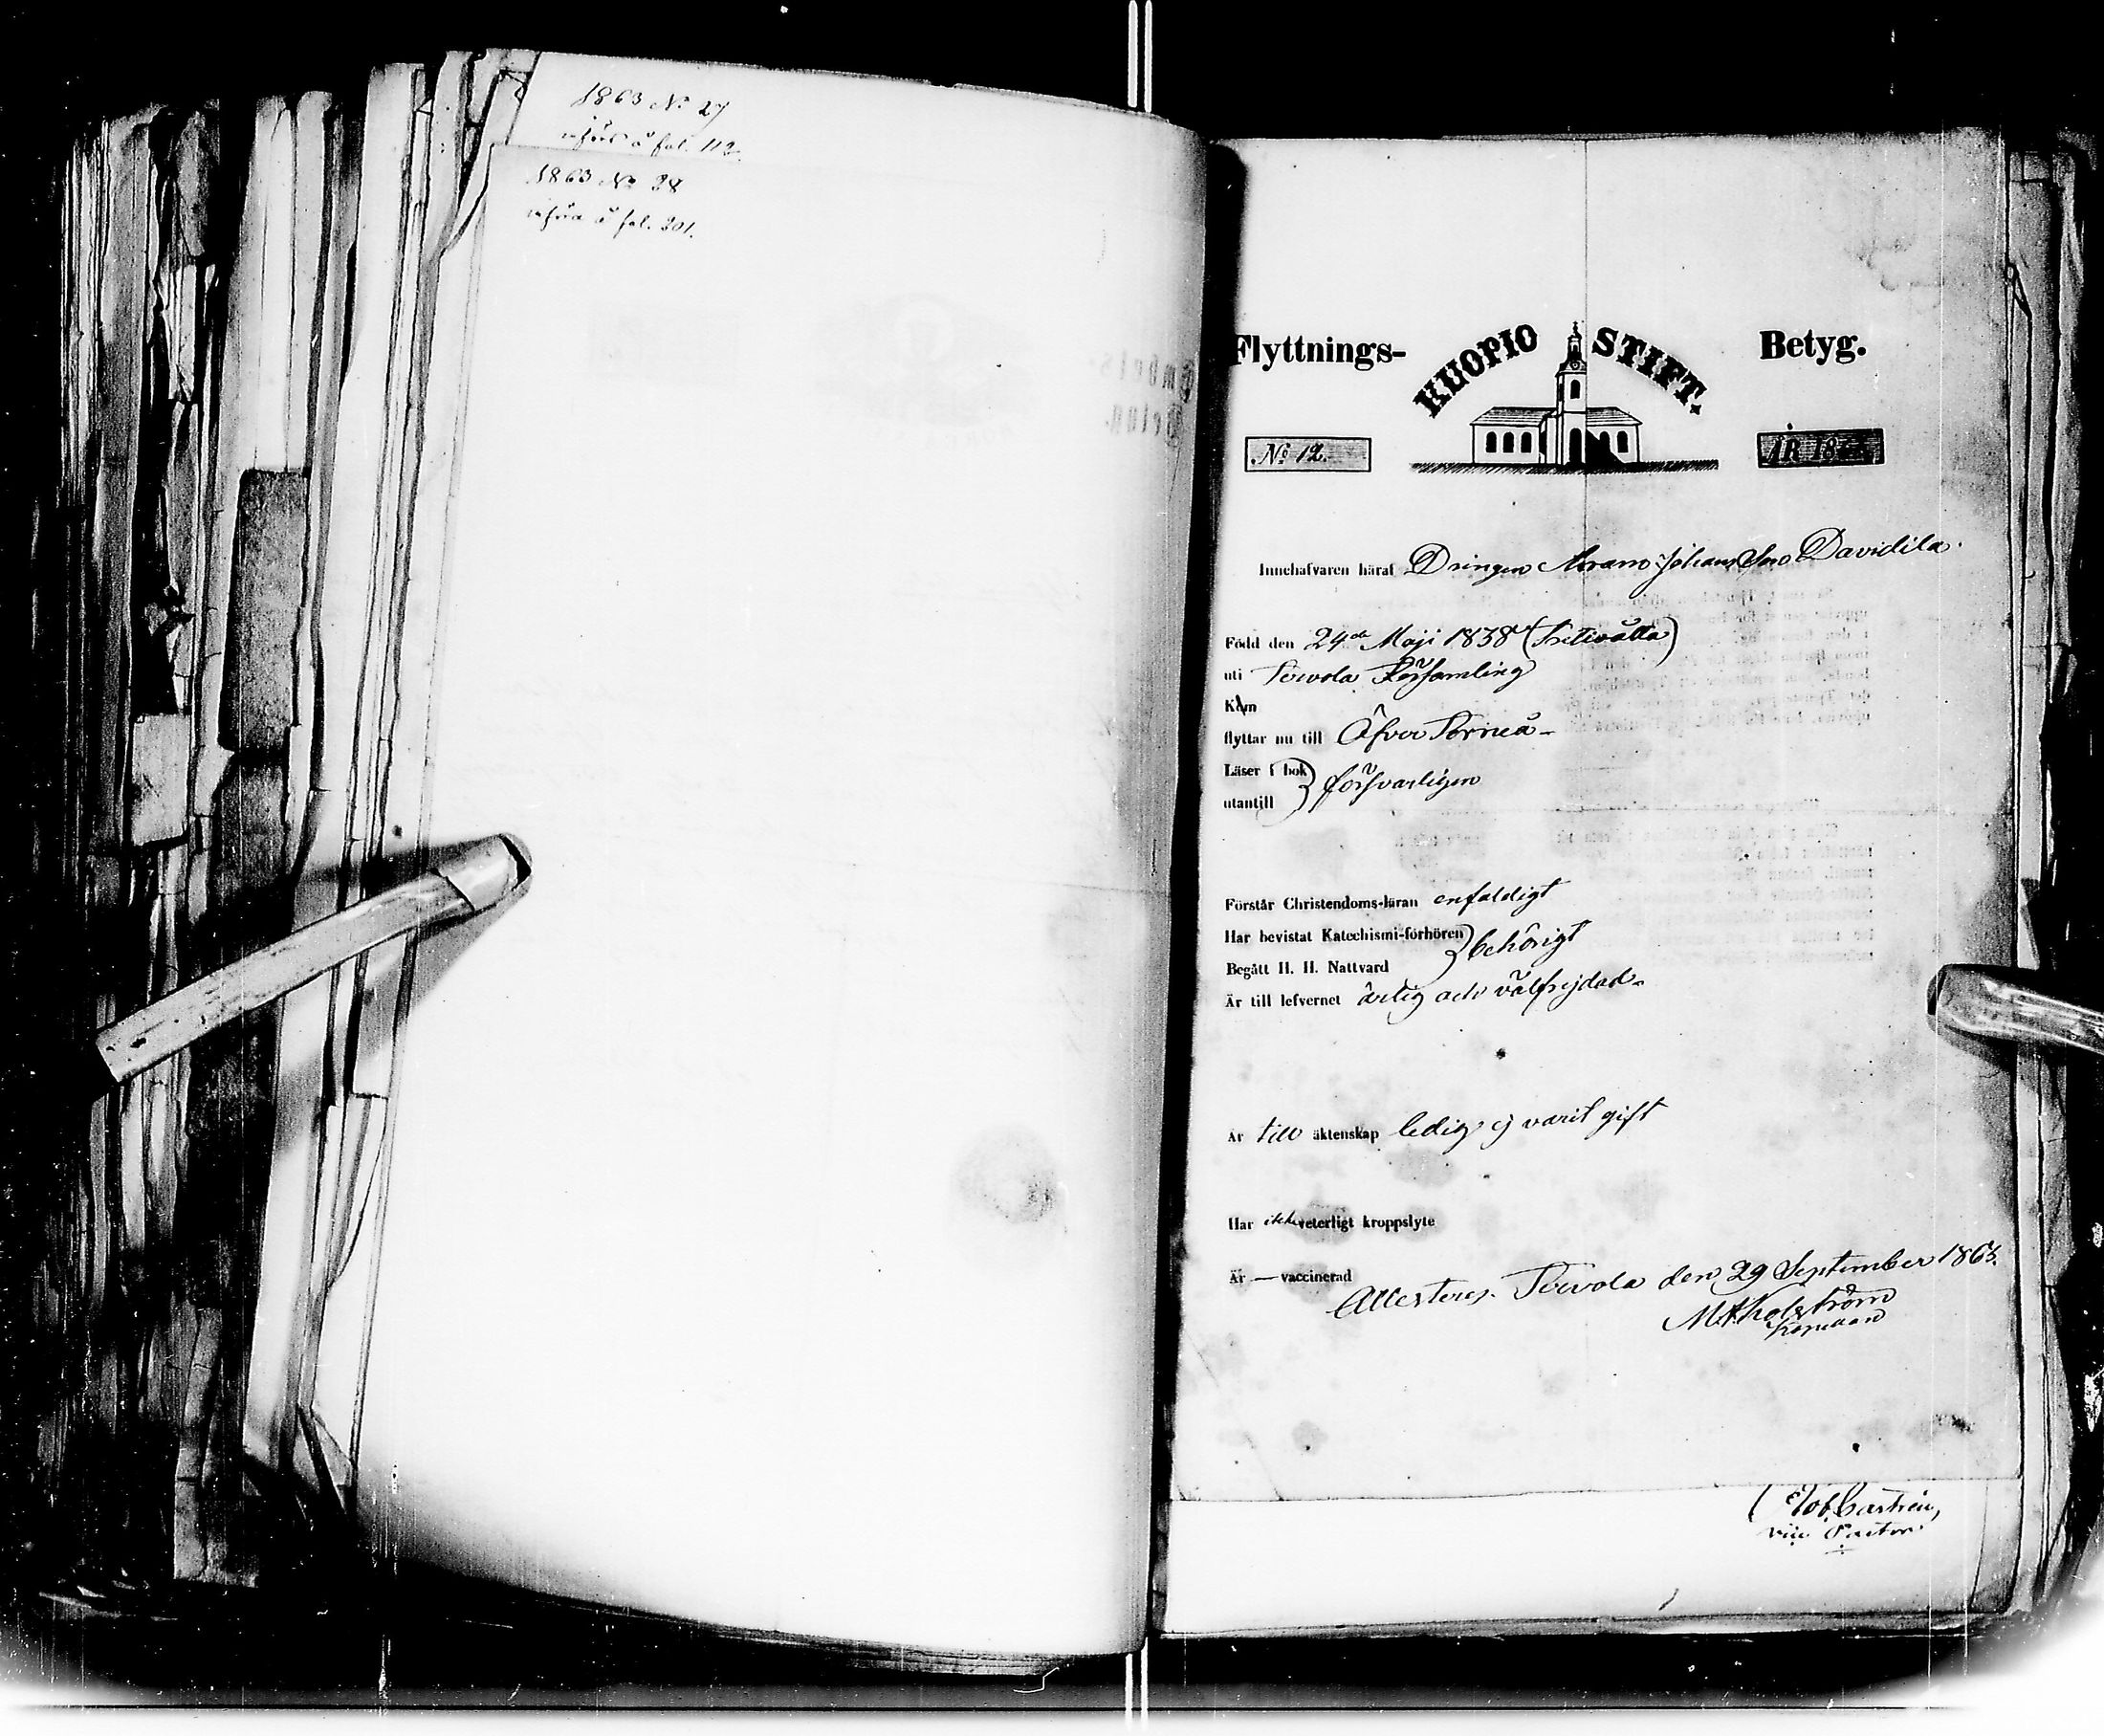 1863 No 27
införd å fol. 112.
1863 No 28
införd å fol. 201.
Flyttnings- KUOPIO STIFT. Betyg.
No 12. ÅR 18
Innehafvaren häraf Drängen Abram Johansson Davidila.
Född den 24de Maji 1838 (
uti Tervola Församling
Kom
flyttar nu till Öfver Torneå-
Läser i bok
utantill } försvarligen
Förstår Christendoms-läran enfaldigt
Har bevistat Katechismi-förhören
Begått H. H. Nattvard } behörigt
Är till lefvernet ärlig och välfrejdad-
Är till äktenskap ledig ej varit gift
Har icke veterligt kroppslyte
Är — vaccinerad
Attesteras. Tervola den 29 September 1863.
Kapellan
Castrén,
vice Pastor.